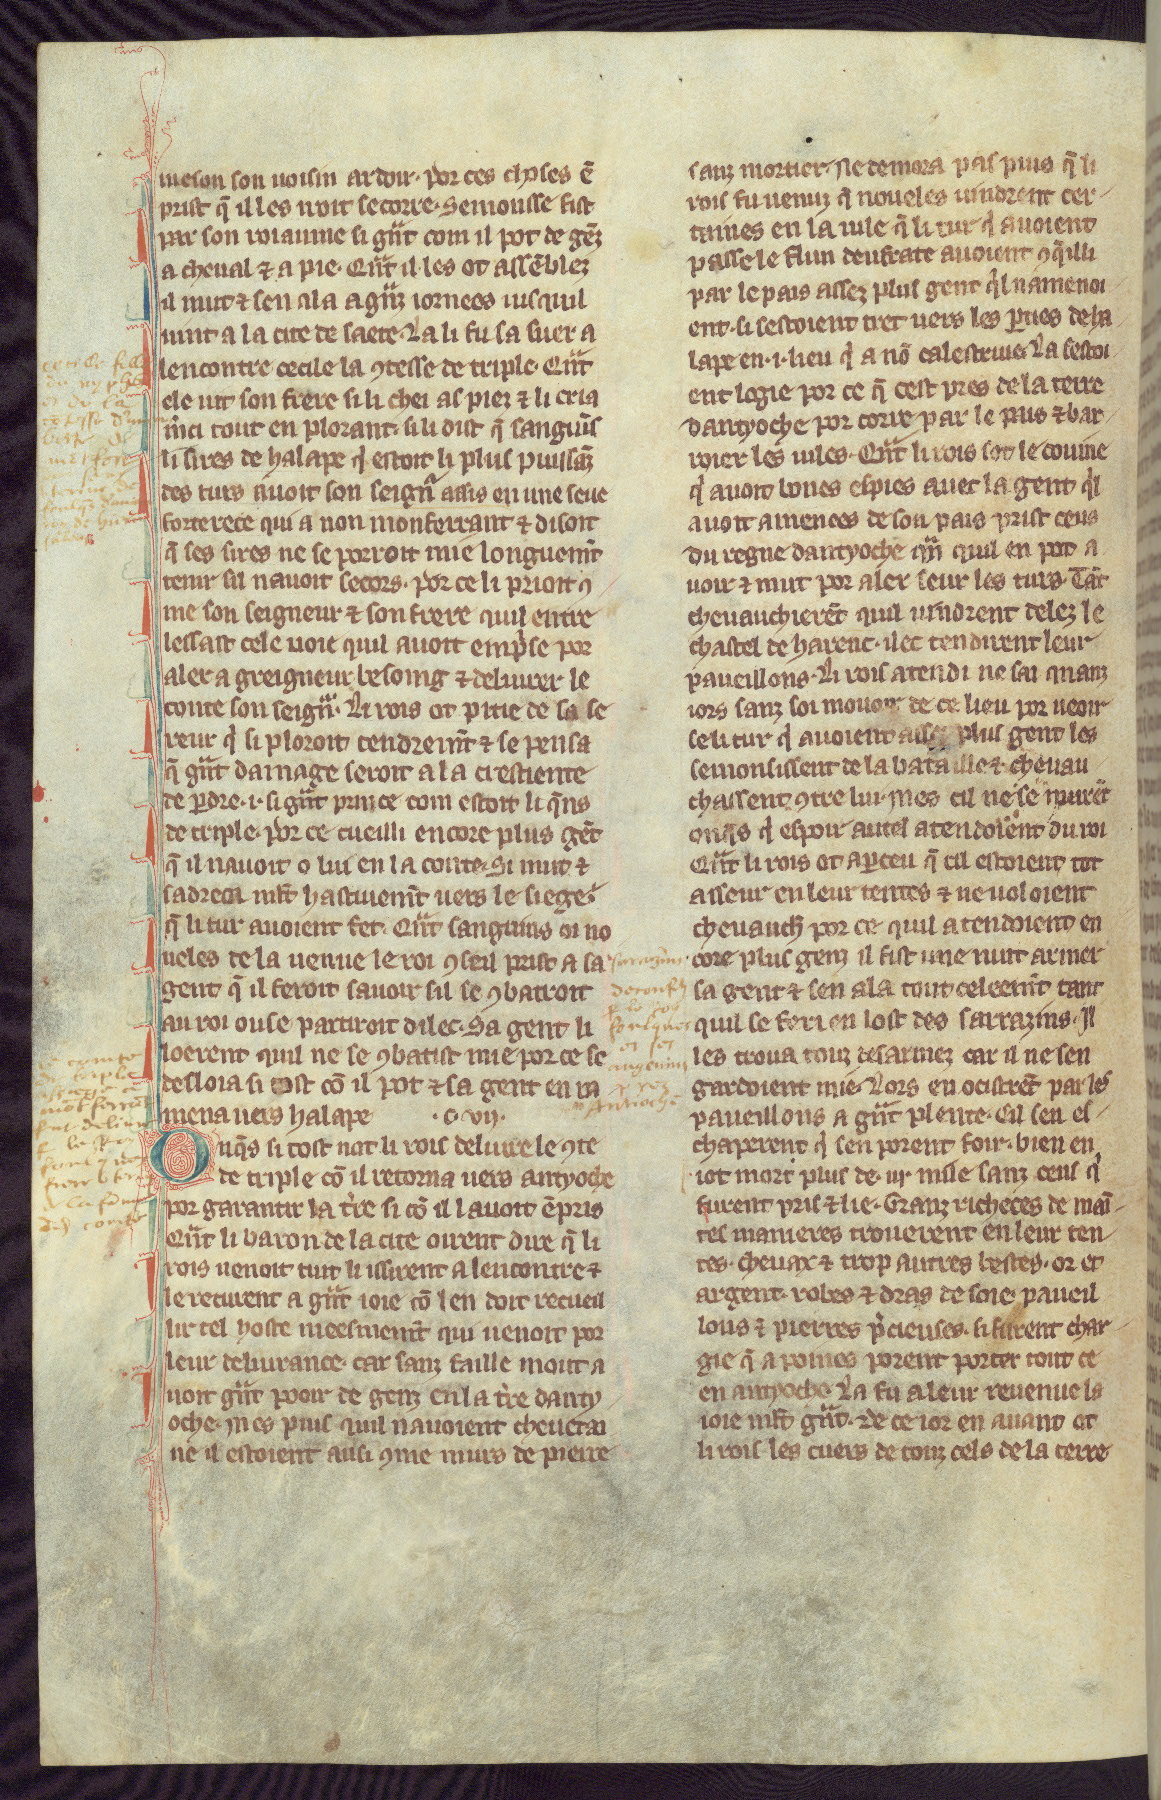 meson son uoisin ardoir. por ces choses ē
prist q̄ il les iroit secorre. Semousse fist
par son roiaume si gn̄t com il pot de gēz
a cheual ⁊ a pie. Qn̄t il les ot assēblez
il mut ⁊ sen ala a gn̄z iornees iusquil
uint a la cite de saete. La li fu sa suer a
lencontre cecile la ꝯtesse de triple. Qn̄t
ele uit son frere si li chei as piez ⁊ li cria
m̄ci tout en plorant. si li dist q̄ sanguīs
li sires de halape q̇ estoit li plus puissāz
des turs auoit son seign̄r assis en une seue
forterece qui a non monferrant ⁊ disoit
q̄ ses sires ne se porroit mie longuem̄t
tenir sil nauoit secors. por ce li prioit ꝯ
me son seigneur ⁊ son frere quil entre
lessast cele uoie quil auoit emp̄se por
aler a greigneur besoing ⁊ deliurer le
conte son seign̄r. Li rois ot pitie de sa se
reur q̇ si ploroit tendrem̄t ⁊ se pensa
q̄ gn̄t damage seroit a la crestiente
de ꝑdre .i. si gn̄t prince com estoit li q̄ns
de triple. por ce cueilli encore plus gēt
q̄ il nauoit o lui en la conte. Si mut ⁊
sadreca ml̄t hastiuem̄t uers le siege
q̄ li tur auoient fet. Qn̄t sanguins oi no
ueles de la uenue le roi ꝯseil prist a sa
gent q̄ il feroit sauoir sil se ꝯbatroit
au roi ou se partiroit dilec. Sa gent li
loerent quil ne se ꝯbatist mie por ce se
desloia si tost cō il pot ⁊ sa gent en m
mena uers halape .c. vii.
Onq̄s si tost not li rois deliure le ꝯte
de triple cō il retorna uers antyoche
por garantir la t̄re si cō il lauoit ēpris
Qn̄t li baron de la cite oirent dire q̄ li
rois uenoit tuit li issirent a lencontre ⁊
le recurent a gn̄t ioie cō len doit recueil
lir tel hoste meesmem̄t qui uenoit por
leur deliurance. car sanz faille mout a
uoit gn̄t pooir de genz en la t̄re danty
oche. mes puis quil nauoient cheuetai
ne il estoient ausi ꝯme murs de pierre
sanz mortier. Ne demora pas puis q̄ li
rois fu uenuz q̄ noueles uindrent cer
taines en la uile q̄ li tur q̇ auoient
passe le flun deufrate auoient ꝯq̄illi
par le pais assez plus gent q̇l namenoi
ent. si sestoient tret uers les ꝑties de ha
lape en .i. lieu q̇ a nō calestrius. La sestoi
ent logie por ce q̄ cest pres de la terre
dantyoche por corre par le pais ⁊ bar
roier les uiles. Qn̄t li rois sot le couine
q̇ auoit bones espies auec la gent q̇l
auoit amenees de son pais prist ceus
du regne dantyoche quil en pot a
uoir ⁊ mut por aler seur les turs. Tāt
cheuauchierēt quil uindrent delez le
chastel de harenc. ilec tendirent leur
paueillons. Li rois atendi ne sai quanz
iors sanz soi mouoir de ce lieu por ueoir
se li tur q̇ auoient assez plus gent les
semonsissent de la bataille ⁊ cheuau
chassent ꝯtre lui. mes cil ne se murēt
onq̄s q̇ espoir autel atendoient du roi
Qn̄t li rois ot aꝑceu q̄ cil estoient tot
asseur en leur tentes ⁊ ne uoloient
cheuauch̄ por ce quil atendoient en
core plus genz il fist une nuit armer
sa gent ⁊ sen ala tout celeem̄t tant
quil se feri en lost des sarrazins. Il
les troua touz desarmez car il ne sen
gardoient mie. Lors en ocistrēt par les
paueillons a gn̄t plente. Cil sen es
chaperent q̇ sen porent foir. bien en
iot mort plus de .iii. mile sanz ceus q̇
furent pris ⁊ lie. Granz richeces de maī
tes manieres trouerent en leur ten
tes. cheuax ⁊ trop autres bestes. or et
argent. robes ⁊ dras de soie. paueil
lons ⁊ pierres p̄cieuses. si furent char
gie q̄ a poines porent porter tout ce
en antyoche. La fu a leur reuenue la
ioie ml̄t gn̄t. De ce ior en auant ot
li rois les cuers de touz cels de la terre